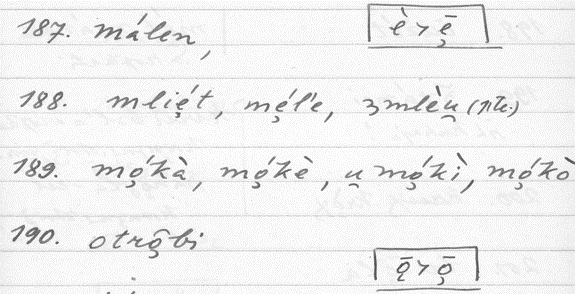 187. málen, è > ē̢
188. mlié̢t, mé̢l'e, zmlèu̯ (ptc.)
189. mó̢kà, mó̢kè, u̯ mó̢kì, mó̢kò
190. otrō̢bi
ǭ > ō̢